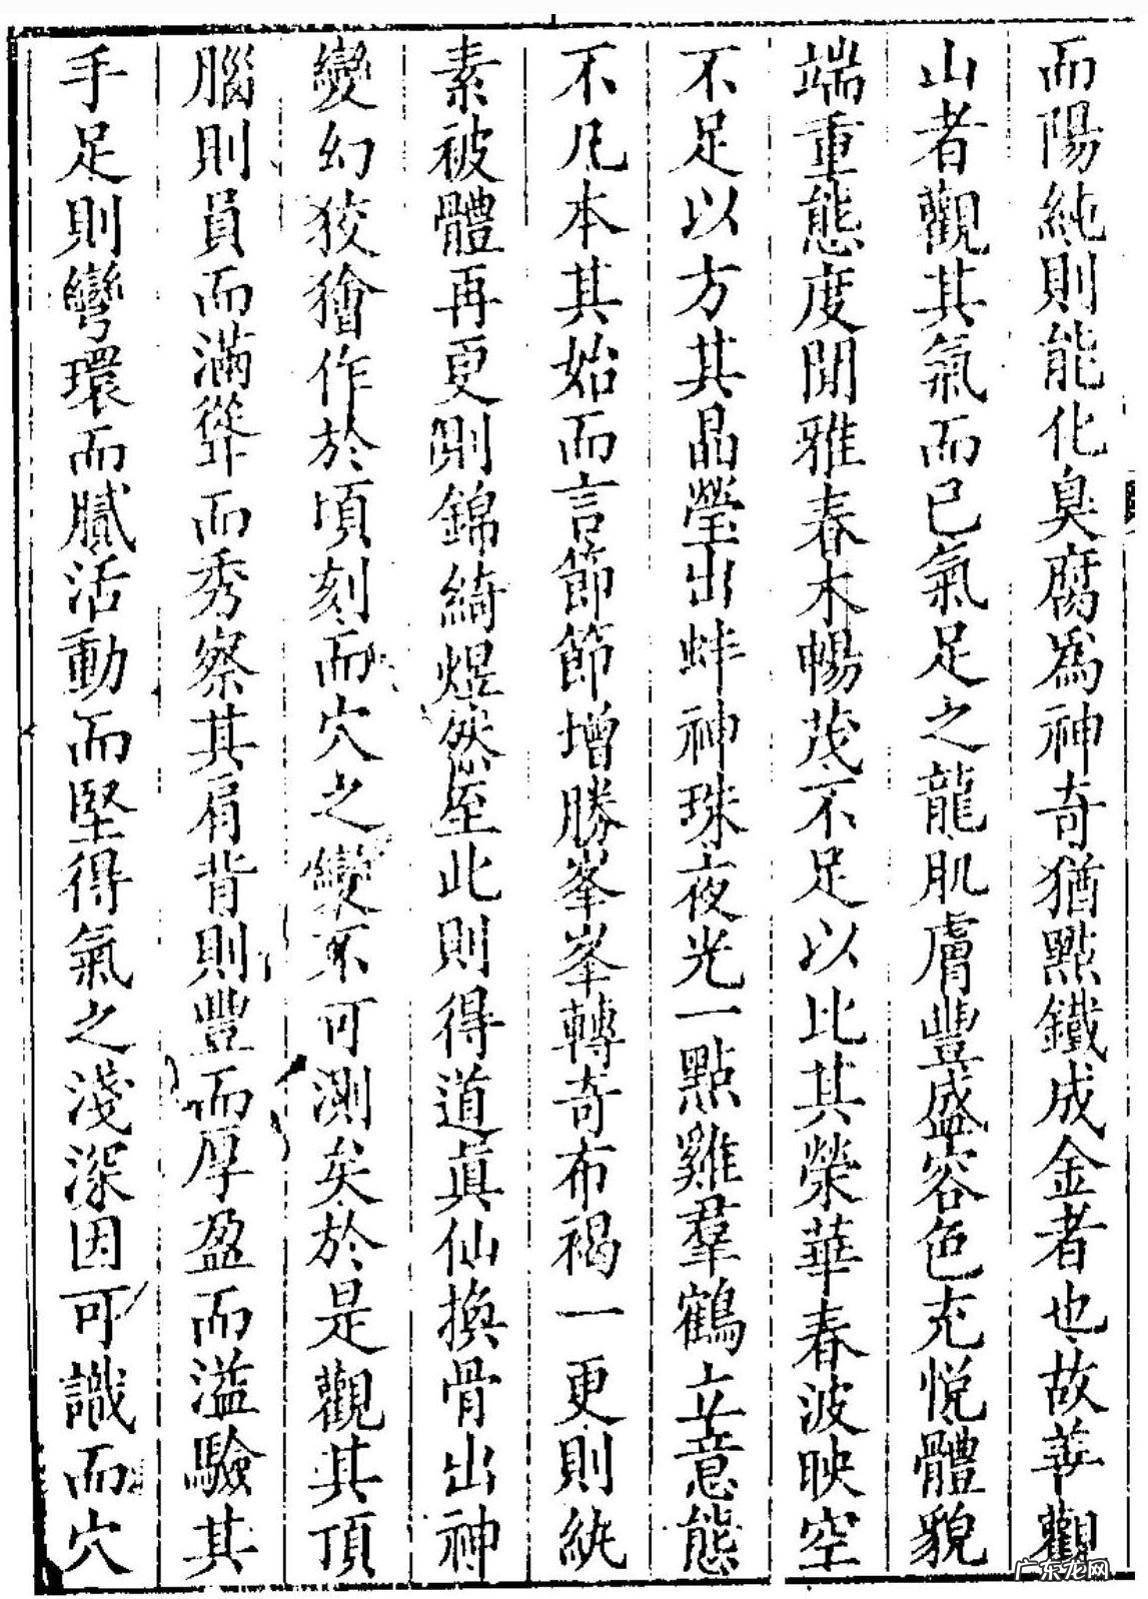 而陽純則能化臭腐爲神奇猶點鐵成金者也故善觀
山者觀其氣而已氣足之龍肌膚豐盛容色充悅體貌
端重態度閒雅春木暢茂不足以比其榮華春波映空
不足以方其晶瑩出蚌神珠夜光一點雞羣鶴立意態
不凡本其始而言節節增勝峯峯轉奇布褐一更則紈
素被體再更則錦綺煜然至此則得道眞仙換骨出神
變幻狡獪作於頃刻而穴之變不可測矣於是觀其頂
腦則員而滿聳而秀察其肩背則豐而厚盈而溢驗其
手足則彎環而膩活動而堅得氣之淺深因可識而穴
广东龙网